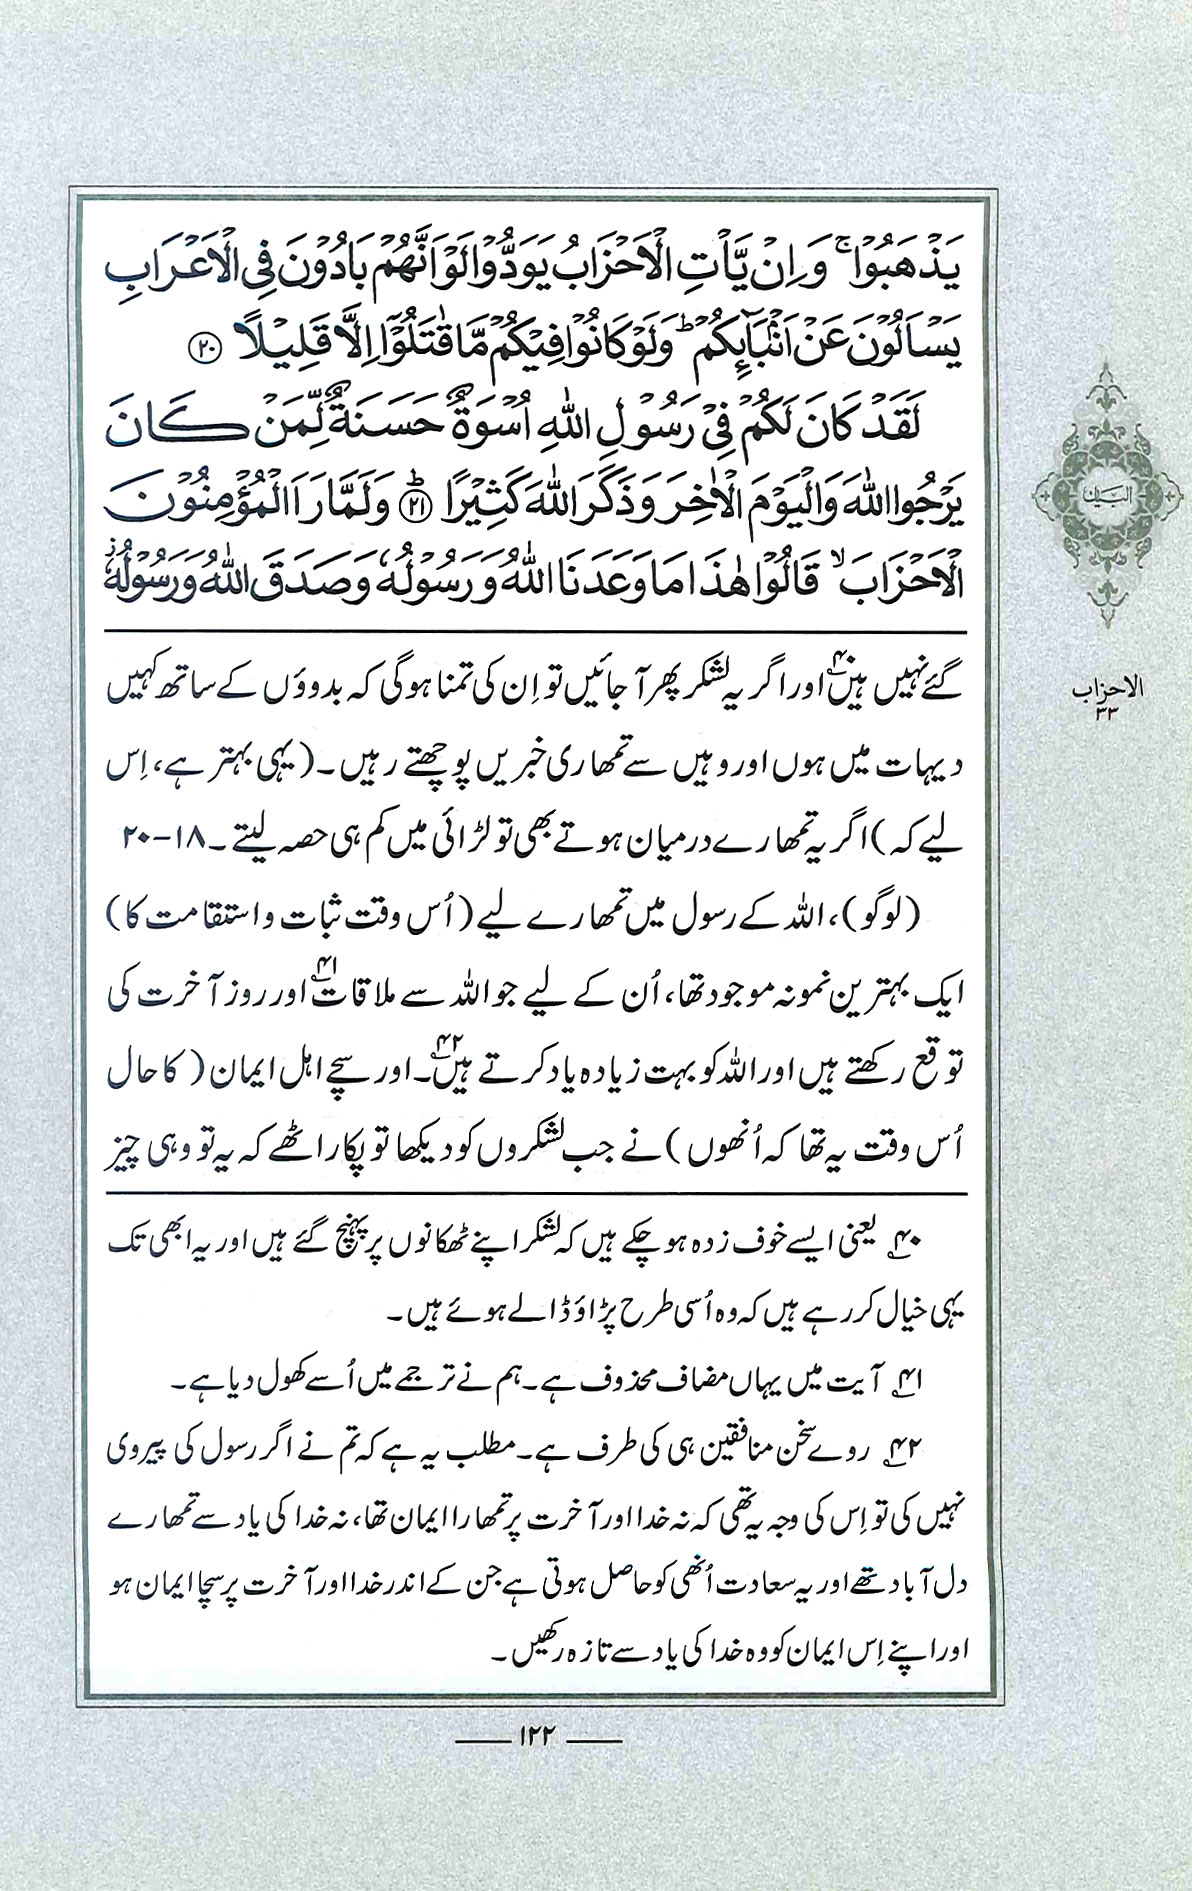 يَذْهَبُوْاۚ وَاِنْ يَّاْتِ الْاَحْزَابُ يَوَدُّوْا لَوْ اَنَّهُمْ بَادُوْنَ فِى الْاَعْرَابِ
يَسْاَلُوْنَ عَنْ اَنْۢبَآئِكُمْؕ وَلَوْ كَانُوْا فِيْكُمْ مَّا قٰتَلُوْٓا اِلَّا قَلِيْلًا ﴿۲۰﴾
لَقَدْ كَانَ لَكُمْ فِىْ رَسُوْلِ اللّٰهِ اُسْوَةٌ حَسَنَةٌ لِّمَنْ كَانَ
يَرْجُوا اللّٰهَ وَالْيَوْمَ الْاٰخِرَ وَذَكَرَ اللّٰهَ كَثِيْرًا ﴿۲۱﴾ؕ وَلَمَّا رَاَ الْمُؤْمِنُوْنَ
الْاَحْزَابَۙ قَالُوْا هٰذَا مَا وَعَدَنَا اللّٰهُ وَرَسُوْلُهٗ وَصَدَقَ اللّٰهُ وَرَسُوْلُهٗؗ
گئے نہیں ہیں۴۰ اور اگر یہ لشکر پھر آ جائیں تو اِن کی تمنا ہو گی کہ بدووؤں کے ساتھ کہیں
دیہات میں ہوں اور وہیں سے تمھاری خبریں پوچھتے رہیں۔ (یہی بہتر ہے، اِس
لیے کہ) اگر یہ تمھارے درمیان ہوتے بھی تو لڑائی میں کم ہی حصہ لیتے۔ ۱۸-۲۰
(لوگو)، اللہ کے رسول میں تمھارے لیے (اُس وقت ثبات و استقامت کا)
ایک بہترین نمونہ موجود تھا، اُن کے لیے جو اللہ سے ملاقات۴۱ اور روز آخرت کی
توقع رکھتے ہیں اور اللہ کو بہت زیادہ یاد کرتے ہیں۴۲۔ اور سچے اہل ایمان (کا حال
اُس وقت یہ تھا کہ اُنھوں) نے جب لشکروں کو دیکھا تو پکار اٹھے کہ یہ تو وہی چیز
۴۰؎ یعنی ایسے خوف زدہ ہو چکے ہیں کہ لشکر اپنے ٹھکانوں پر پہنچ گئے ہیں اور یہ ابھی تک
یہی خیال کر رہے ہیں کہ وہ اُسی طرح پڑاؤ ڈالے ہوئے ہیں۔
۴۱؎ آیت میں یہاں مضاف محذوف ہے۔ ہم نے ترجمے میں اُسے کھول دیا ہے۔
۴۲؎ روے سخن منافقین ہی کی طرف ہے۔ مطلب یہ ہے کہ تم نے اگر رسول کی پیروی
نہیں کی تو اِس کی وجہ یہ تھی کہ نہ خدا اور آخرت پر تمھارا ایمان تھا، نہ خدا کی یاد سے تمھارے
دل آباد تھے اور یہ سعادت اُنھی کو حاصل ہوتی ہے جن کے اندر خدا اور آخرت پر سچا ایمان ہو
اور اپنے اِس ایمان کو وہ خدا کی یاد سے تازہ رکھیں۔
البیان
الاحزاب
۳۳
۱۲۲